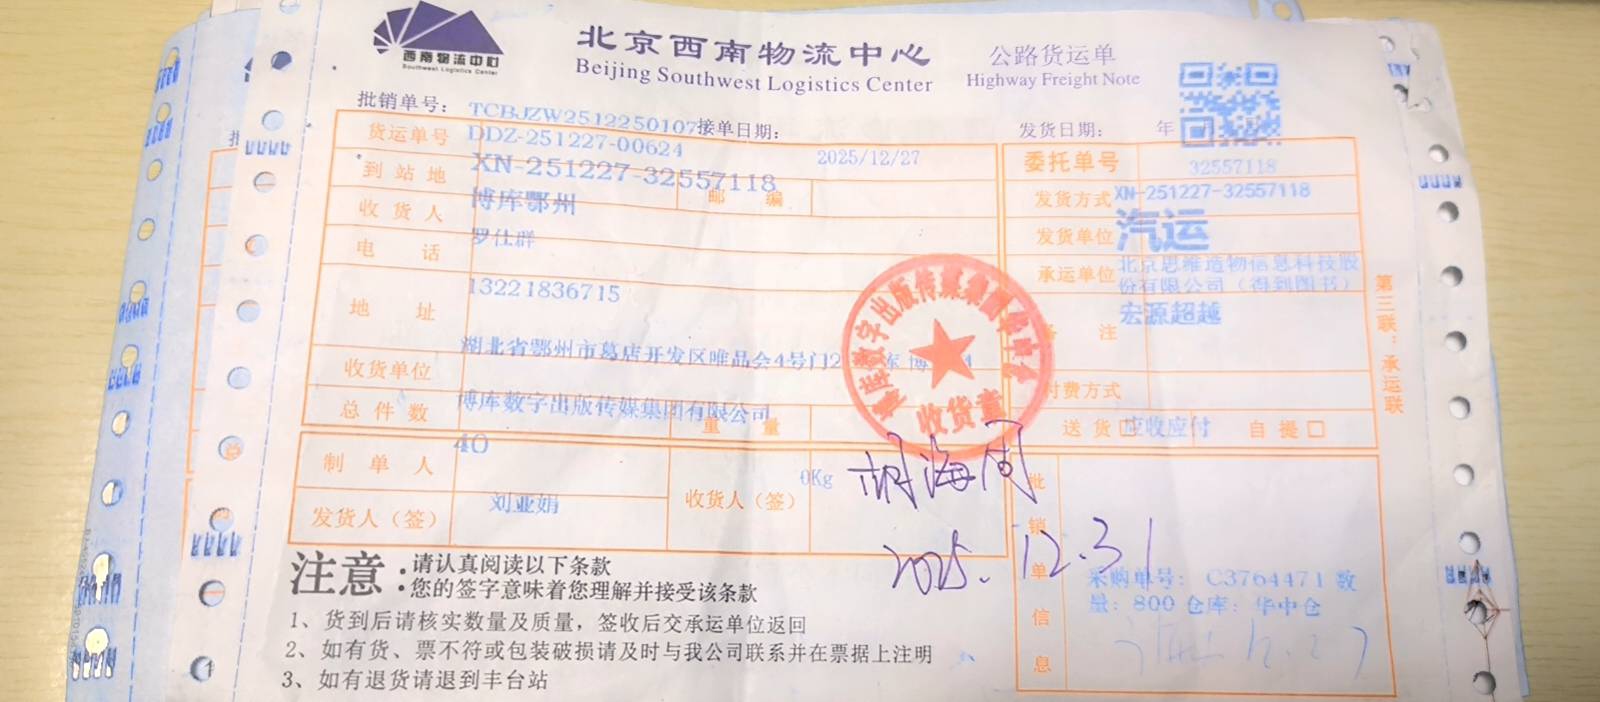 西南物流中心
Southwest Logistics Center
北京西南物流中心
Beijing Southwest Logistics Center
公路货运单
Highway Freight Note
批销单号: TCBJZW2512250107 接单日期: 2025/12/27
发货日期: 年
货运单号 DDZ-251227-00624
XN-251227-32557118
到站地 博库鄂州
邮编
收货人 罗仕群
电话 13221836715
地址 湖北省鄂州市葛店开发区唯品会4号门2
收货单位 博库数字出版传媒集团有限公司
总件数 40
重量 0Kg
制单人 刘亚娟
发货人（签）
收货人（签）
胡海周
2025.12.31
委托单号 32557118
XN-251227-32557118
发货方式 汽运
发货单位 北京思维造物信息科技股份有限公司（得到图书）
承运单位 宏源超越
注
付费方式 应收应付
送货□ 自提□
批销单信息
采购单号: C3764471 数
量: 800 仓库: 华中仓
12.27
第三联：承运联
收货章
注意:
请认真阅读以下条款
您的签字意味着您理解并接受该条款
1、货到后请核实数量及质量，签收后交承运单位返回
2、如有货、票不符或包装破损请及时与我公司联系并在票据上注明
3、如有退货请退到丰台站